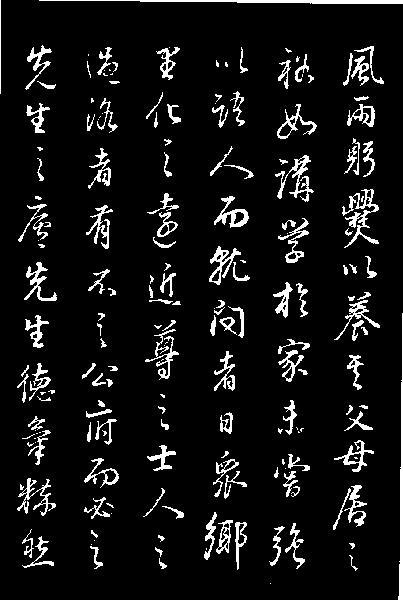 風雨躬爨以養其父母居之
裕如講學於家未嘗強
以語人而就問者日眾鄉
里化之遠近尊之士人之
過洛者有不之公府而必之
先生之廬先生德氣粹然